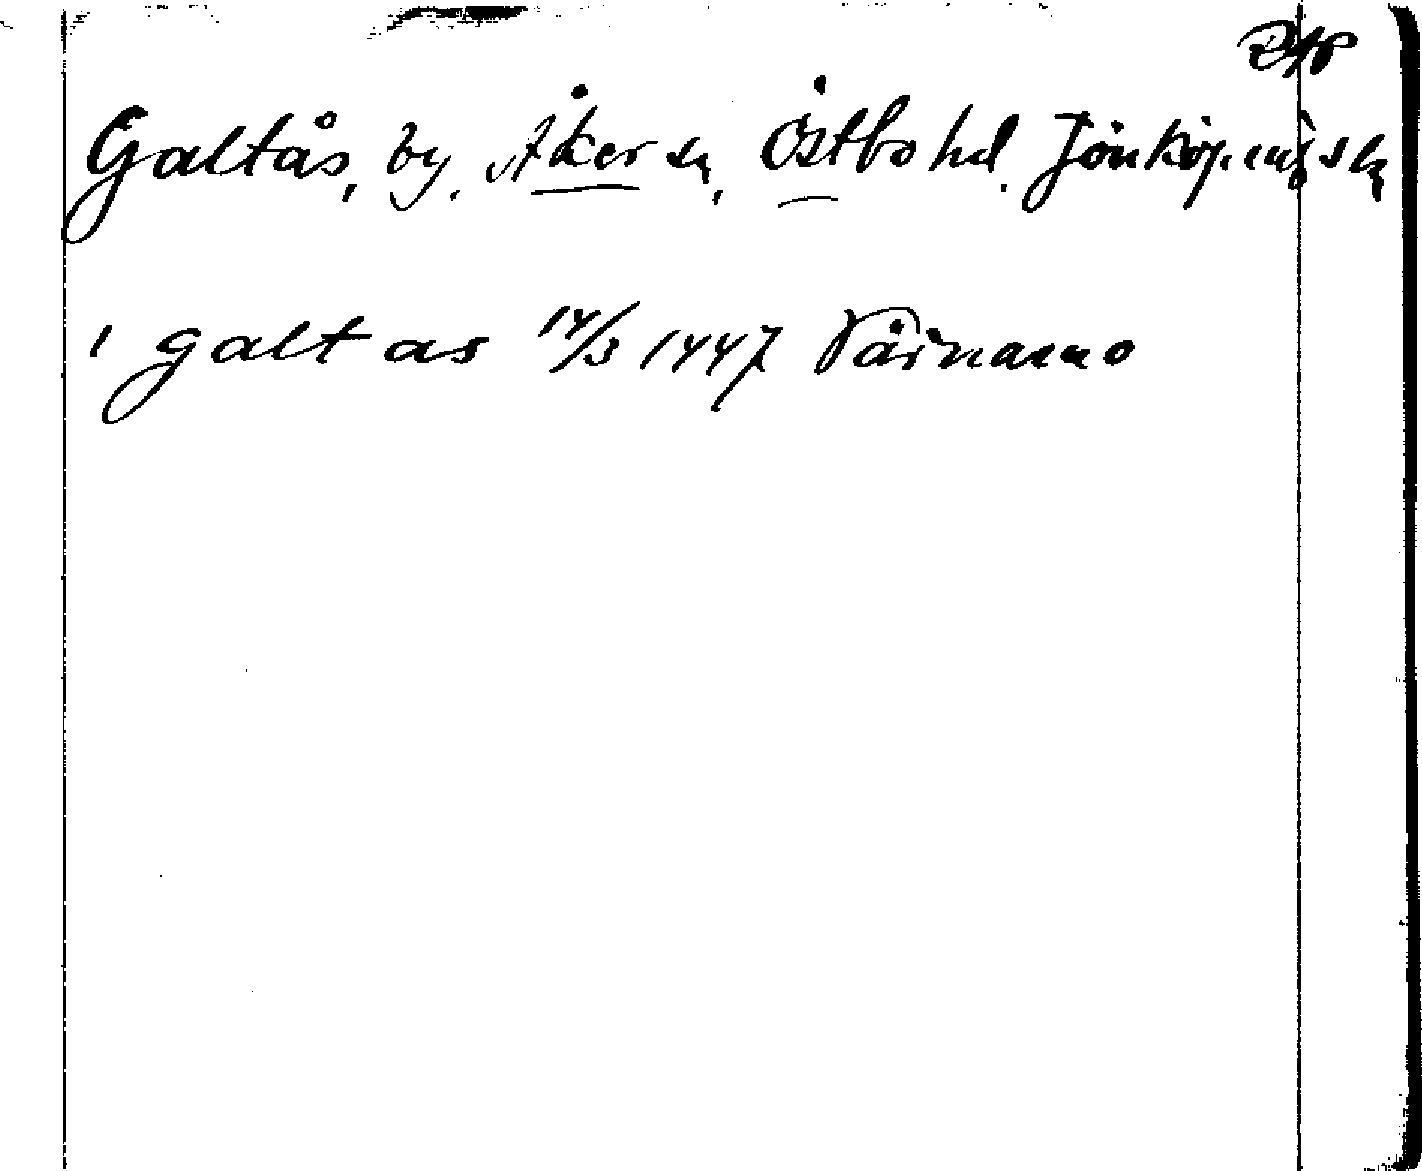 Galtås, by, Åker sn, Östbo hd, Jönköpings l
i galt as 14/3 1447 Värnamo